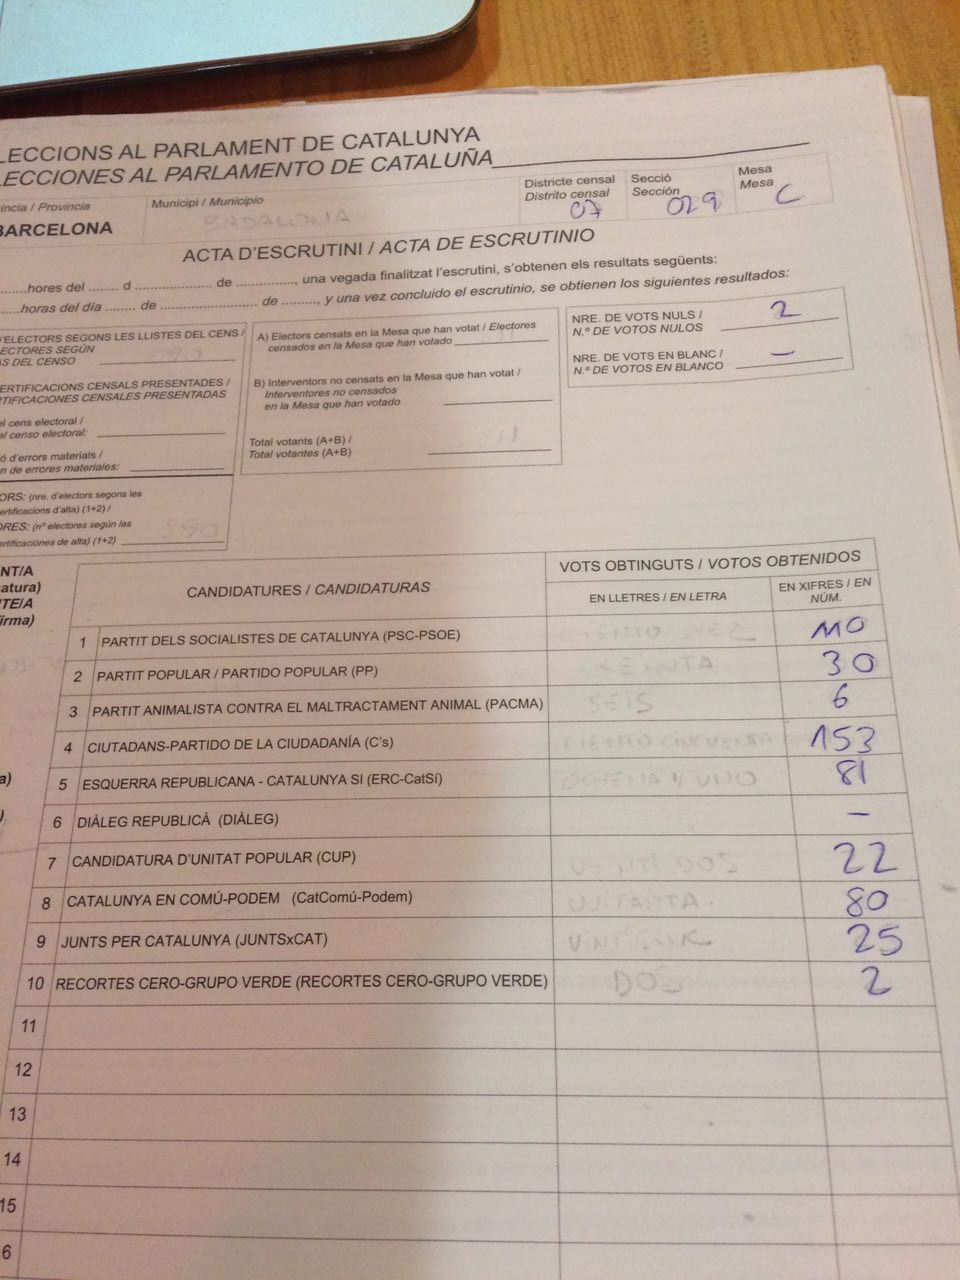 LECCIONS AL PARLAMENT DE CATALUNYA
LECCIONES AL PARLAMENTO DE CATALUÑA
íncia / Provincia
BARCELONA
Municipi / Municipio
BADALONA
Districte censal
Distrito censal
07
Secció
Sección
029
Mesa
Mesa
C
ACTA D'ESCRUTINI / ACTA DE ESCRUTINIO
hores del ........ d .................... de ..............., una vegada finalitzat l'escrutini, s'obtenen els resultats següents:
horas del día ........ de ........................ de ........., y una vez concluido el escrutinio, se obtienen los siguientes resultados:
D'ELECTORS SEGONS LES LLISTES DEL CENS /
ECTORES SEGÚN
AS DEL CENSO
ERTIFICACIONS CENSALS PRESENTADES /
RTIFICACIONES CENSALES PRESENTADAS
el cens electoral /
el censo electoral:
ó d'errors materials /
n de errores materiales:
ORS: (nre. d'electors segons les
ertificacions d'alta) (1+2) /
ORES: (nº electores según las
ertificaciones de alta) (1+2)
590
A) Electors censats en la Mesa que han votat / Electores
censados en la Mesa que han votado
B) Interventors no censats en la Mesa que han votat /
Interventores no censados
en la Mesa que han votado
Total votants (A+B) /
Total votantes (A+B)
NRE. DE VOTS NULS /
N.º DE VOTOS NULOS
2
NRE. DE VOTS EN BLANC /
N.º DE VOTOS EN BLANCO
—
NT/A
atura)
TE/A
irma)
CANDIDATURES / CANDIDATURAS
VOTS OBTINGUTS / VOTOS OBTENIDOS
EN LLETRES / EN LETRA
EN XIFRES / EN
NÚM.
1 PARTIT DELS SOCIALISTES DE CATALUNYA (PSC-PSOE) 110
2 PARTIT POPULAR / PARTIDO POPULAR (PP) 30
3 PARTIT ANIMALISTA CONTRA EL MALTRACTAMENT ANIMAL (PACMA) SEIS 6
4 CIUTADANS-PARTIDO DE LA CIUDADANÍA (C's) CIENTO CINCUENTA 153
5 ESQUERRA REPUBLICANA - CATALUNYA SI (ERC-CatSí) 81
6 DIÀLEG REPUBLICÀ (DIÀLEG) —
7 CANDIDATURA D'UNITAT POPULAR (CUP) 22
8 CATALUNYA EN COMÚ-PODEM (CatComú-Podem) 80
9 JUNTS PER CATALUNYA (JUNTSxCAT) 25
10 RECORTES CERO-GRUPO VERDE (RECORTES CERO-GRUPO VERDE) DOS 2
11
12
13
14
15
6